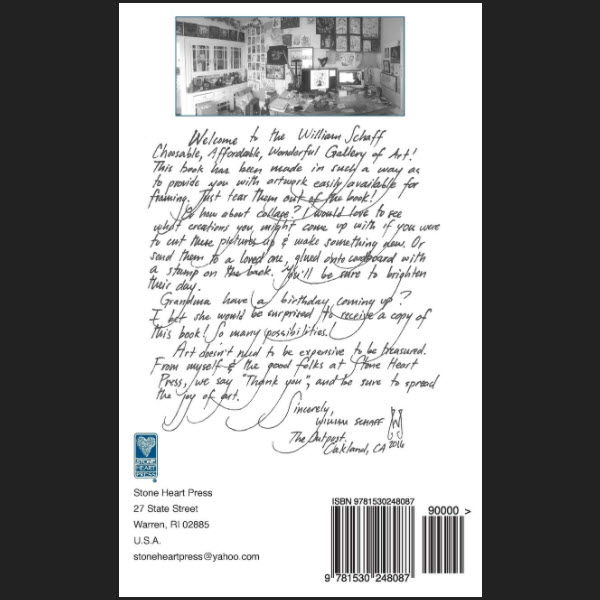 Welcome to the William Schaff
Choosable, Affordable, Wonderful Gallery of Art!
This book has been made in such a way as
to provide you with artwork easily available for
framing. Just tear them out of the book!
Or how about collage? I would love to see
what creations you might come up with if you were
to cut these pictures up & make something new. Or
send them to a loved one, glued onto cardboard with
a stamp on the back. You'll be sure to brighten
their day.
Grandma have a birthday coming up?
I bet she would be surprised to receive a copy of
this book! So many possibilities!
Art doesn't need to be expensive to be treasured.
From myself & the good folks at Stone Heart
Press, we say "Thank you", and be sure to spread
the joy of art.
Sincerely,
William Schaff
The Outpost.
Oakland, CA 2016
STONE
HEART
PRESS
Stone Heart Press
27 State Street
Warren, RI 02885
U.S.A.
stoneheartpress@yahoo.com
ISBN 9781530248087
90000 >
9 781530 248087